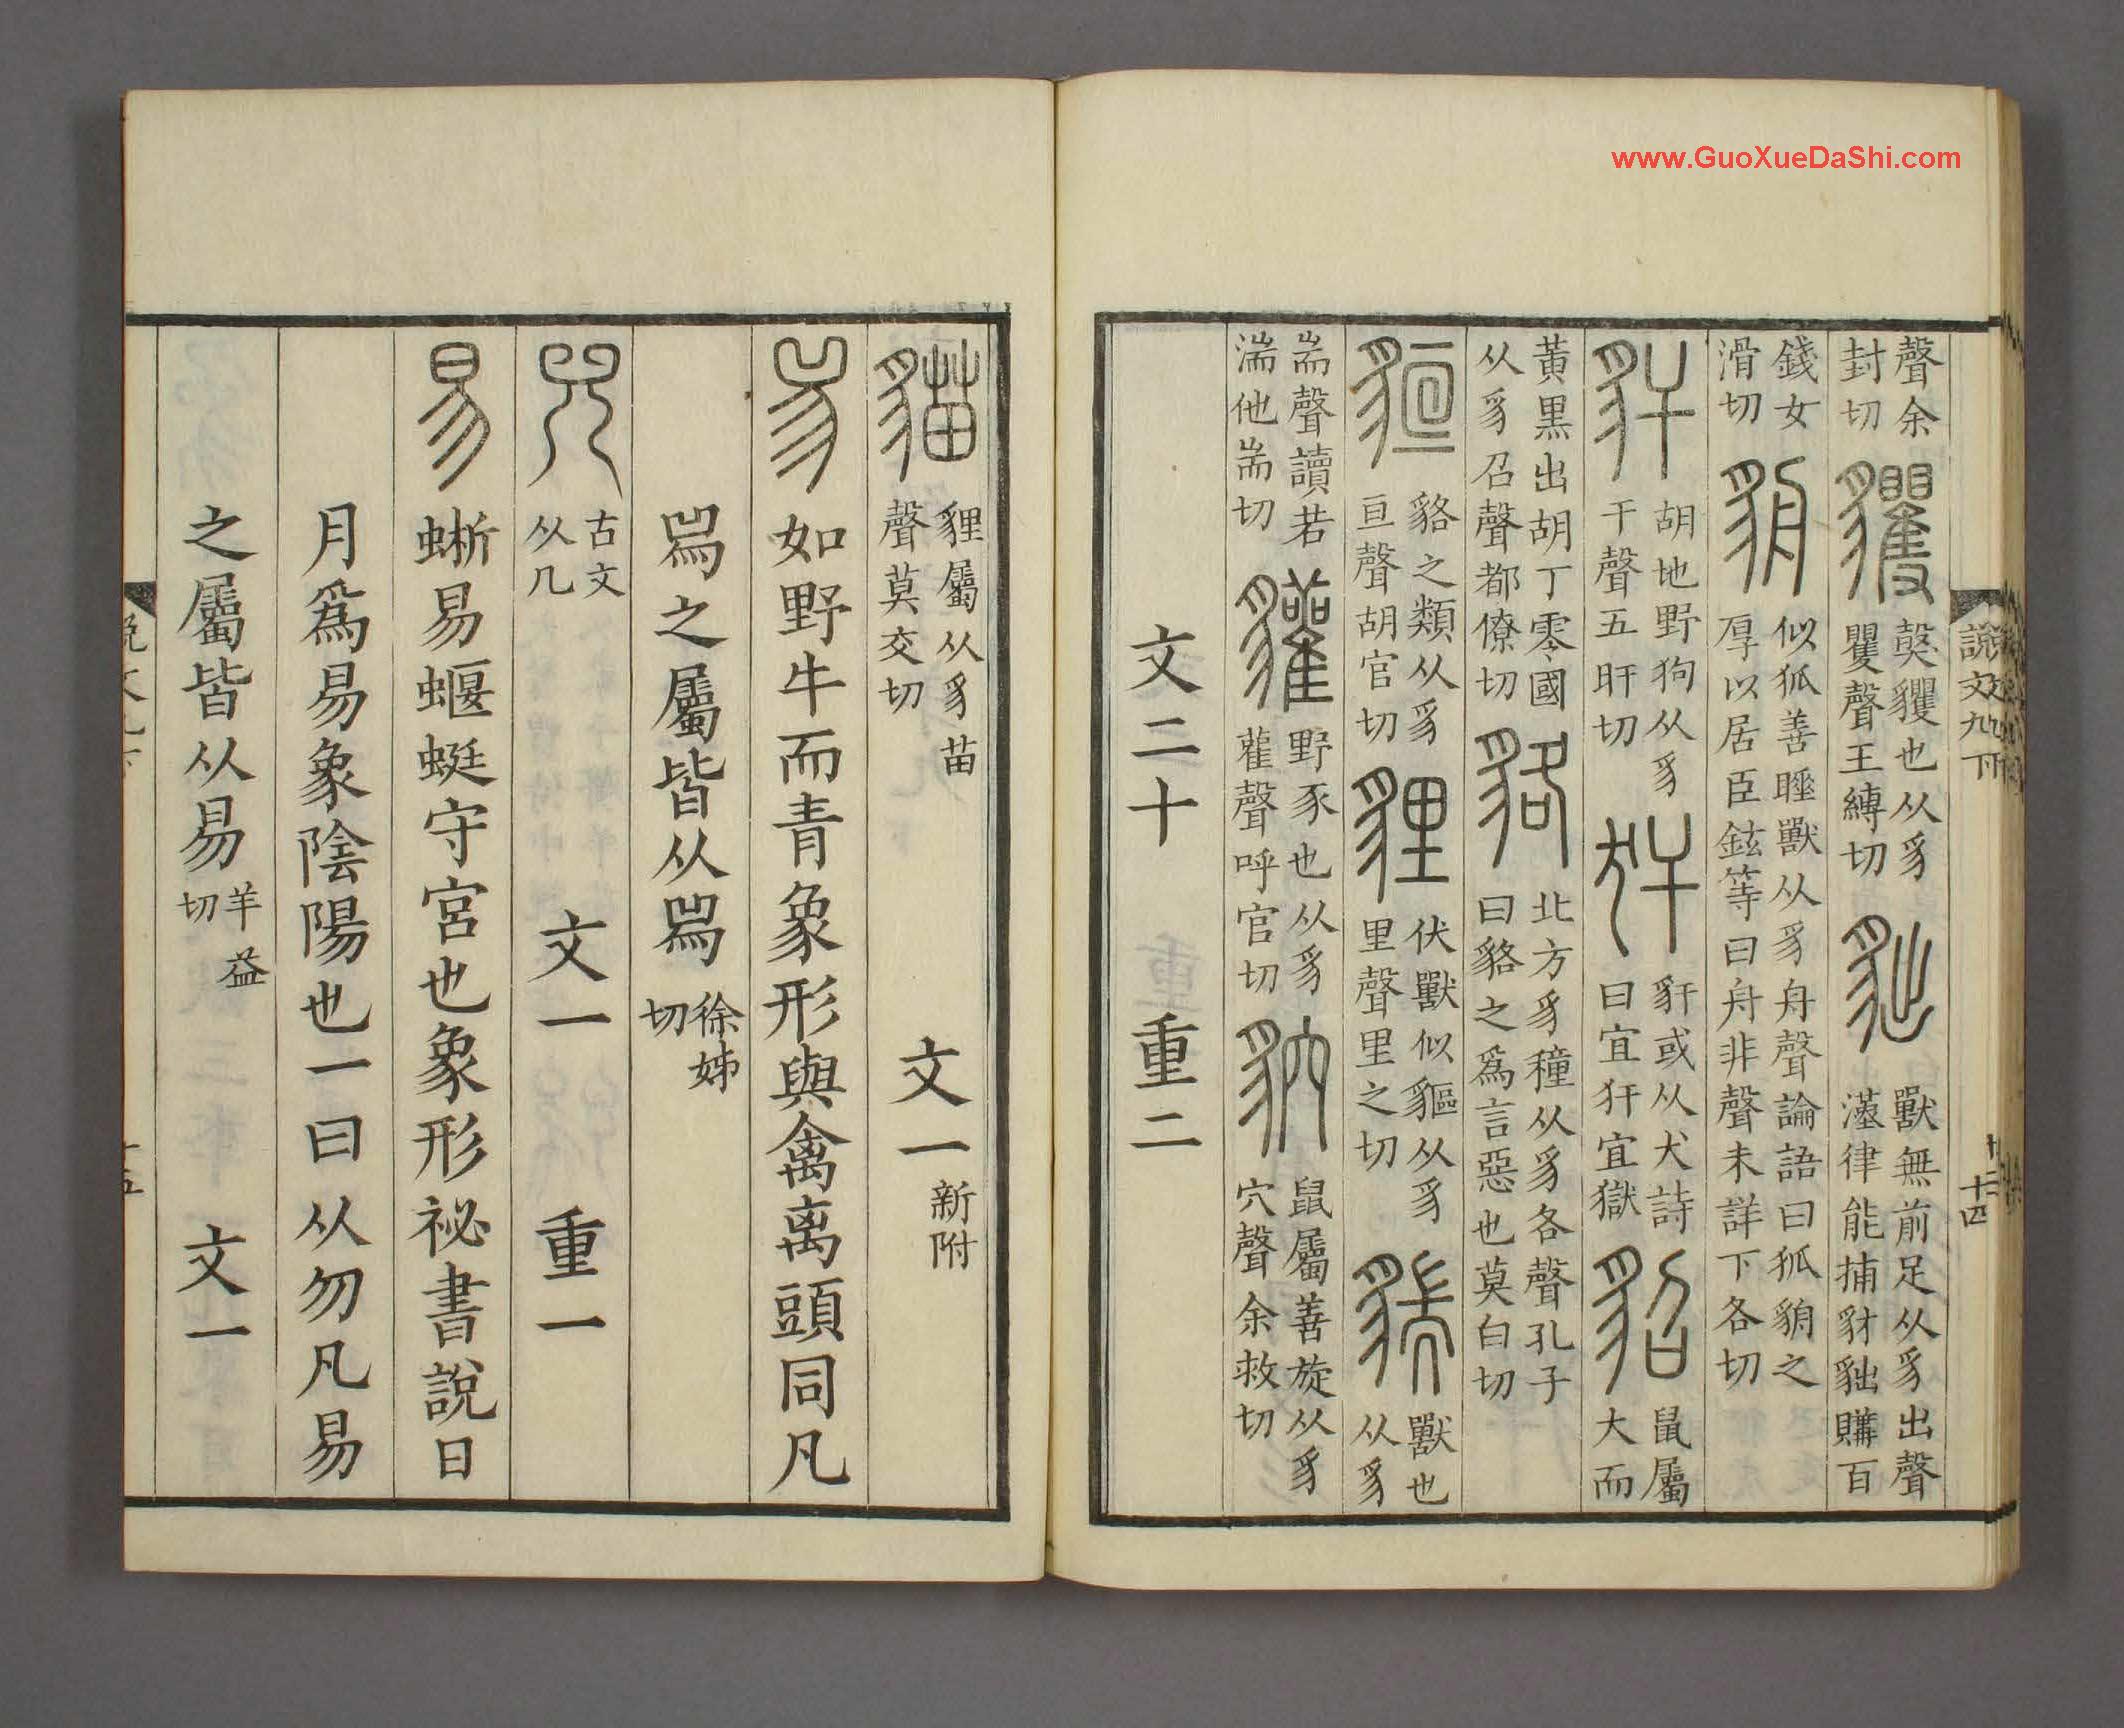 www.GuoXueDaShi.com
說文九下
十四
聲余
封切
貜
㺉貜也从豸
矍聲王縛切
貀
獸無前足从豸出聲
漢律能捕豺貀購百
錢女
滑切
貈
似狐善睡獸从豸舟聲論語曰狐貈之
厚以居臣鉉等曰舟非聲未詳下各切
豻
胡地野狗从豸
干聲五旰切
犴
豻或从犬詩
曰宜犴宜獄
貂
鼠屬
大而
黃黑出胡丁零國
从豸召聲都僚切
貉
北方豸穜从豸各聲孔子
曰貉之爲言惡也莫白切
貆
貉之類从豸
亘聲胡官切
貍
伏獸似貙从豸
里聲里之切
貒
獸也
从豸
耑聲讀若
湍他耑切
貛
野豕也从豸
雚聲呼官切
貁
鼠屬善旋从豸
穴聲余救切
文二十 重二
貓
貍屬从豸苗
聲莫交切
文一
新附
𤉡
如野牛而青象形與禽离頭同凡
𤉡之屬皆从𤉡
徐姊
切
兕
古文
从几
文一 重一
易
蜥易蝘蜓守宮也象形祕書說日
月爲易象陰陽也一曰从勿凡易
之屬皆从易
羊益
切
文一
十五